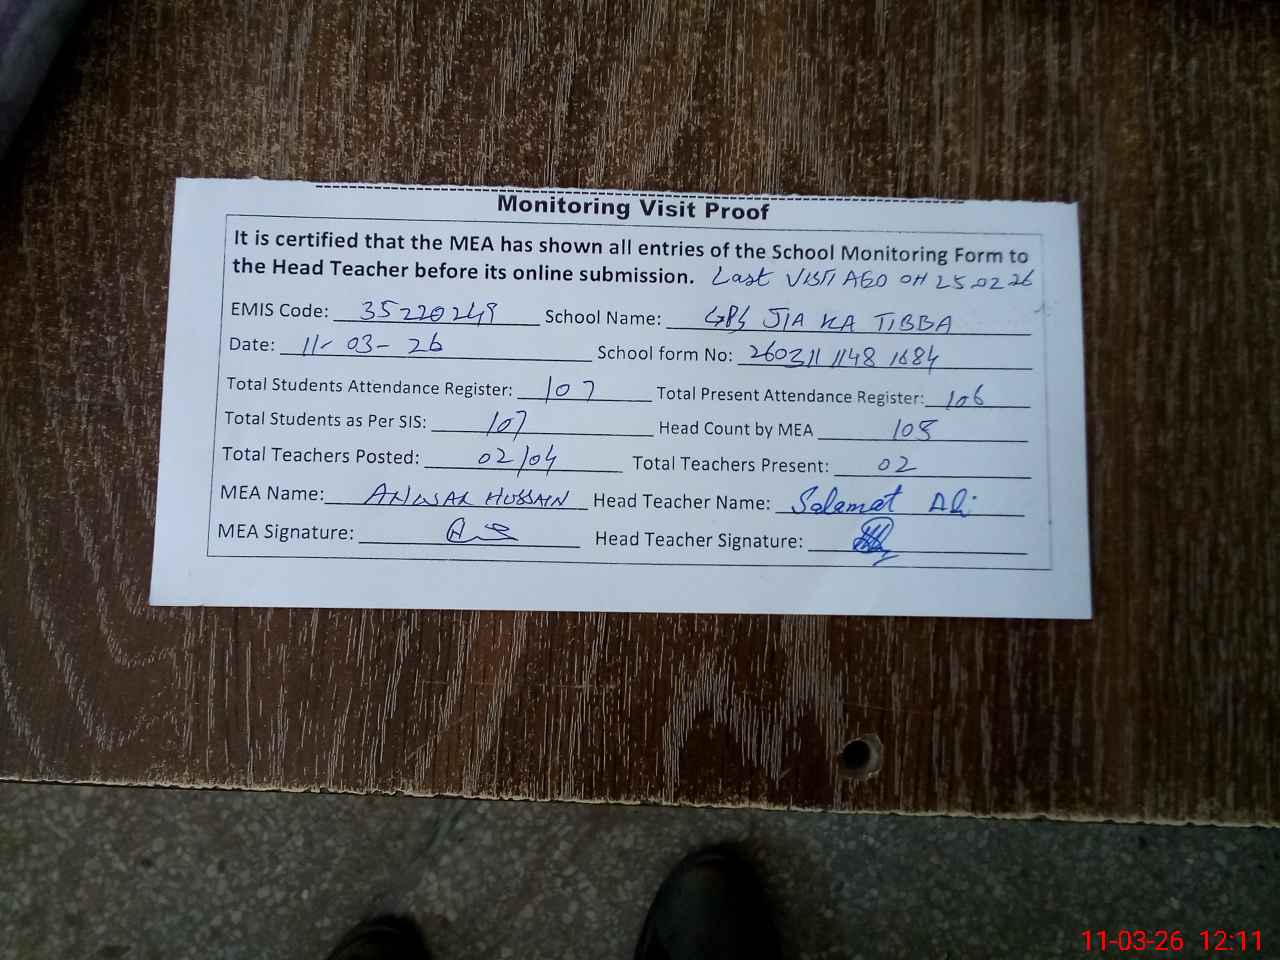 Monitoring Visit Proof
It is certified that the MEA has shown all entries of the School Monitoring Form to
the Head Teacher before its online submission. Last VISIT AEO OH 25.02.26
EMIS Code: 35220249 School Name: GPS JIA KA TIBBA
Date: 11-03-26 School form No: 260311 1148 1684
Total Students Attendance Register: 107 Total Present Attendance Register: 106
Total Students as Per SIS: 107 Head Count by MEA 105
Total Teachers Posted: 02/04 Total Teachers Present: 02
MEA Name: ANWAR HUSSAIN Head Teacher Name: Salamat Ali
MEA Signature: Head Teacher Signature:
11-03-26 12:11